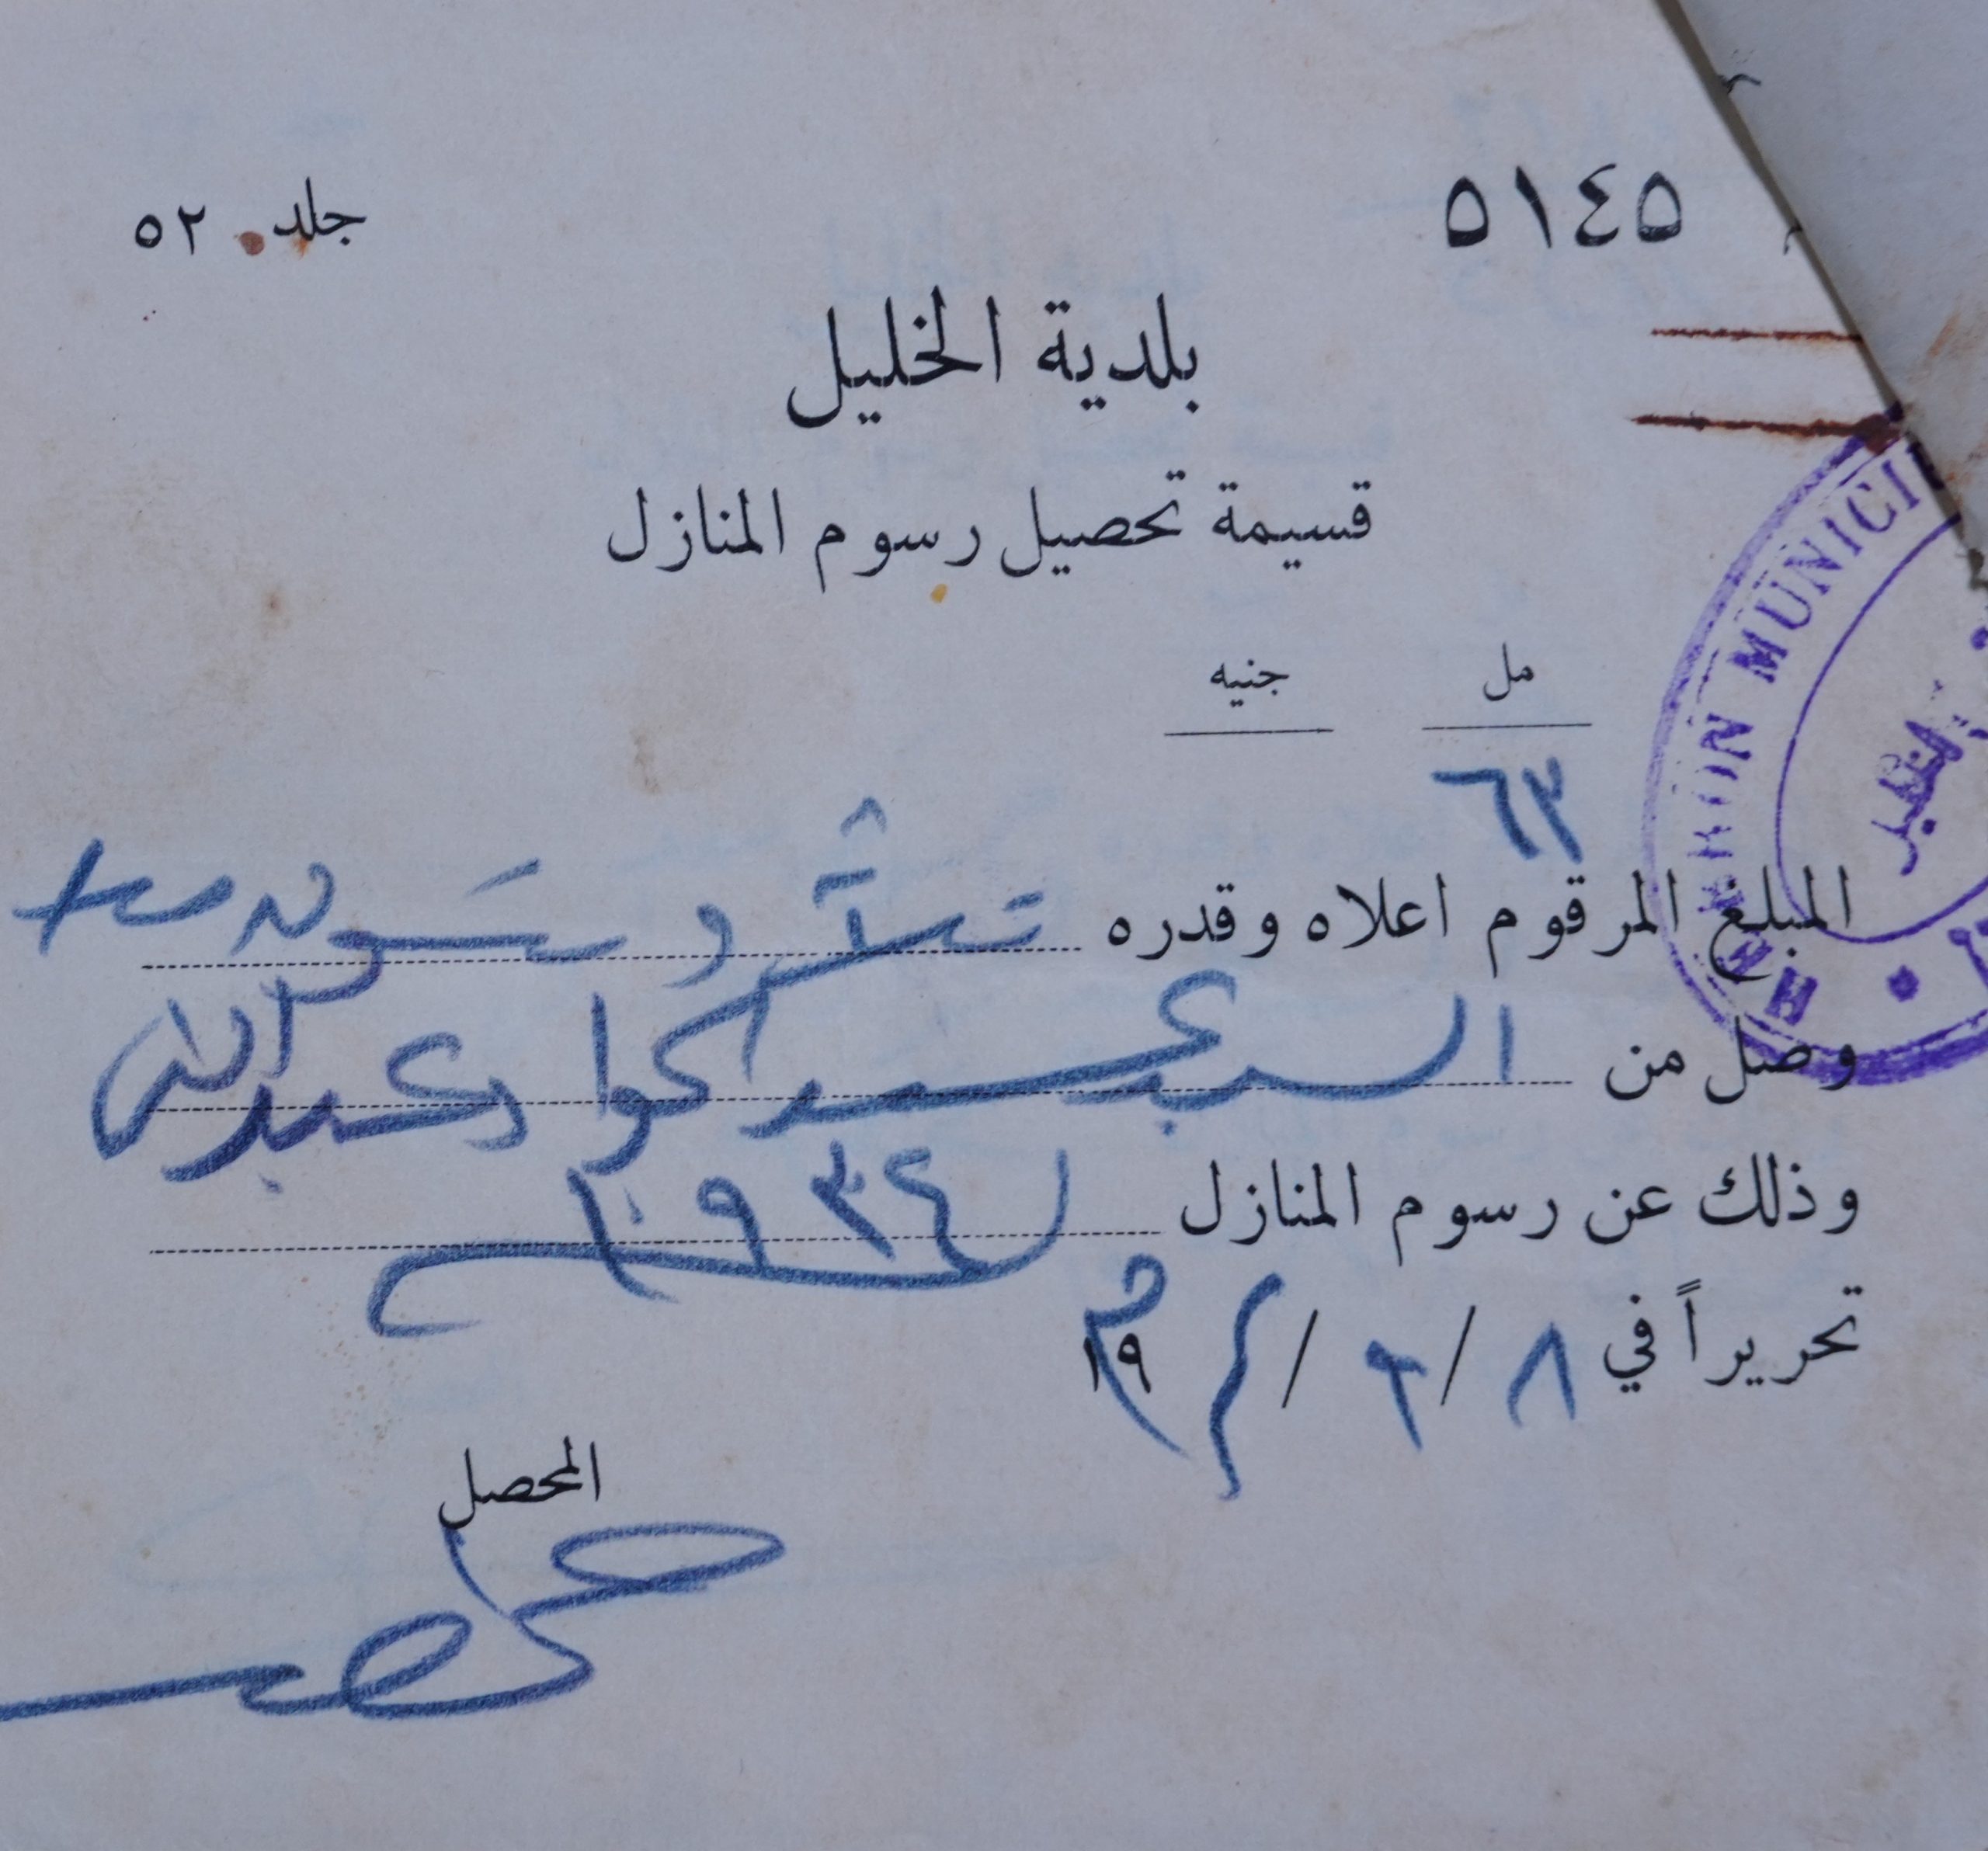 ٥١٤٥
جلد ٥٢
بلدية الخليل
قسيمة تحصيل رسوم المنازل
مل جنيه
٦٣
المبلغ المرقوم اعلاه وقدره ثلاثة وستون مل
وصل من السيد وعبدالله
وذلك عن رسوم المنازل ١٩٣٤
تحريراً في ٨ / ٦ / ١٩
المحصل
HEBRON MUNICI